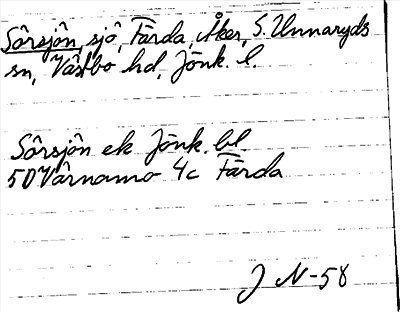 Sörsjön, sjö, Färda, Åker, S. Unnaryds
sn, Västbo hd, Jönk. l.
Sörsjön ek Jönk. bl.
5D Värnamo 4c Färda
J N-58